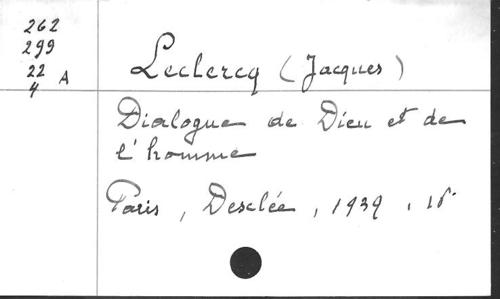 262
299
22 A
4
Leclercq (Jacques)
Dialogue de Dieu et de
l'homme
Paris, Desclée, 1939,